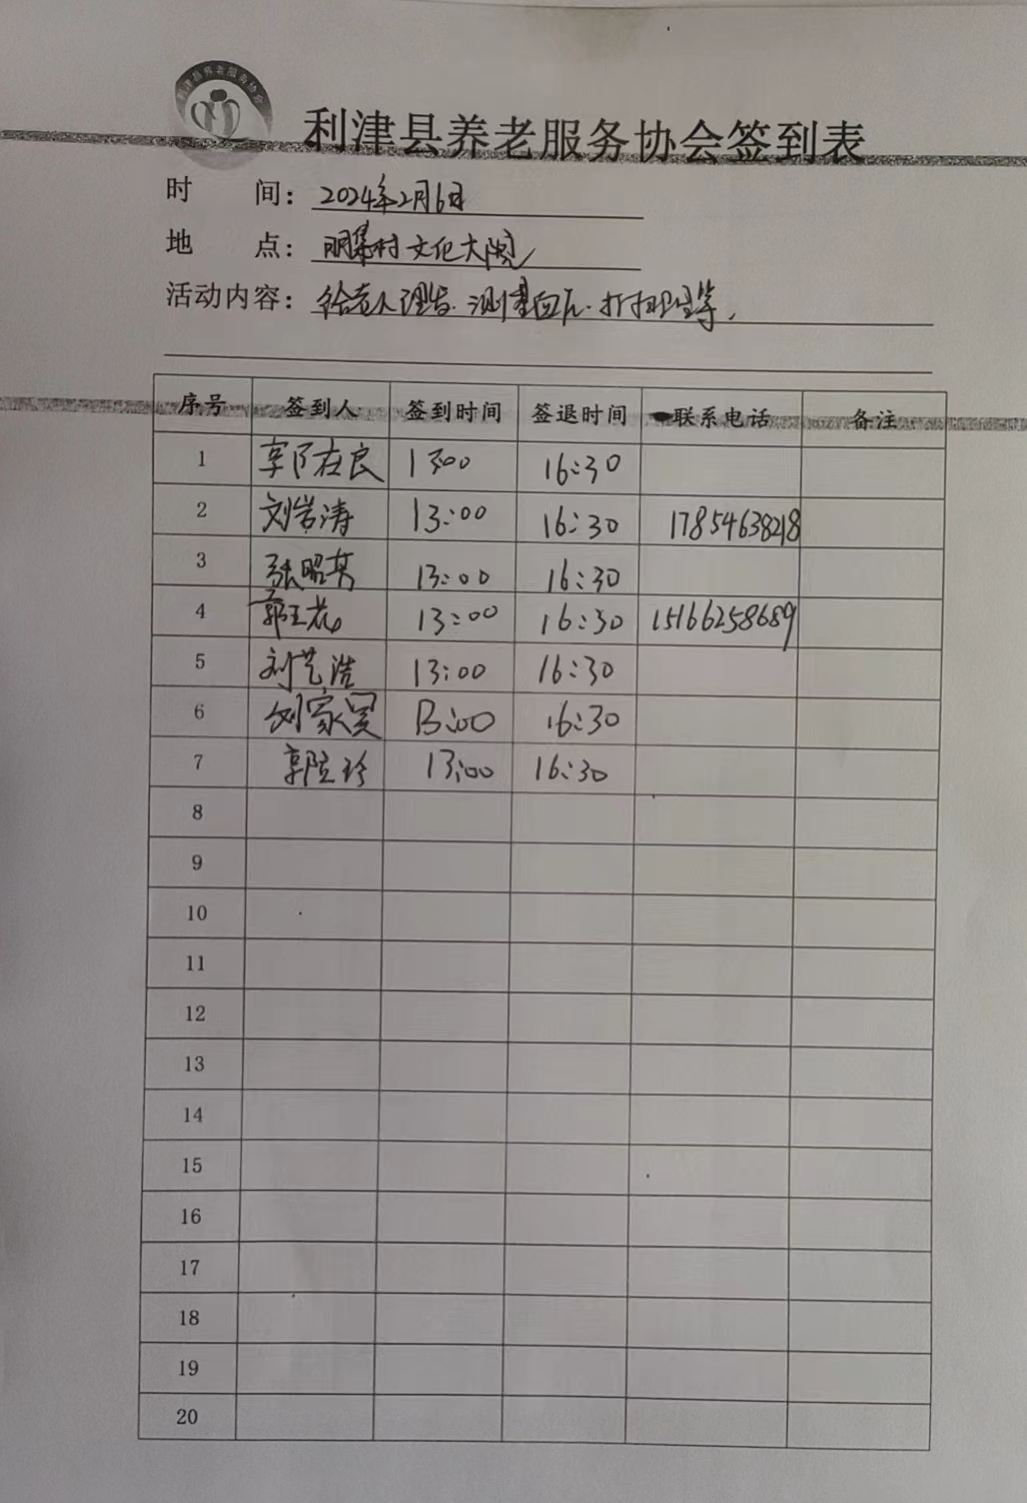 利津县养老服务协会
利津县养老服务协会签到表
时 间：2024年2月6日
地 点：明集村文化大院
活动内容：给老人理发.测量血压.打扫卫生等，
序号 签到人 签到时间 签退时间 联系电话 备注
1 13:00 16:30
2 刘岩涛 13:00 16:30 17854638218
3 张昭英 13:00 16:30
4 郭玉花 13:00 16:30 15166258689
5 刘艺浩 13:00 16:30
6 刘家昊 13:00 16:30
7 13:00 16:30
8
9
10
11
12
13
14
15
16
17
18
19
20